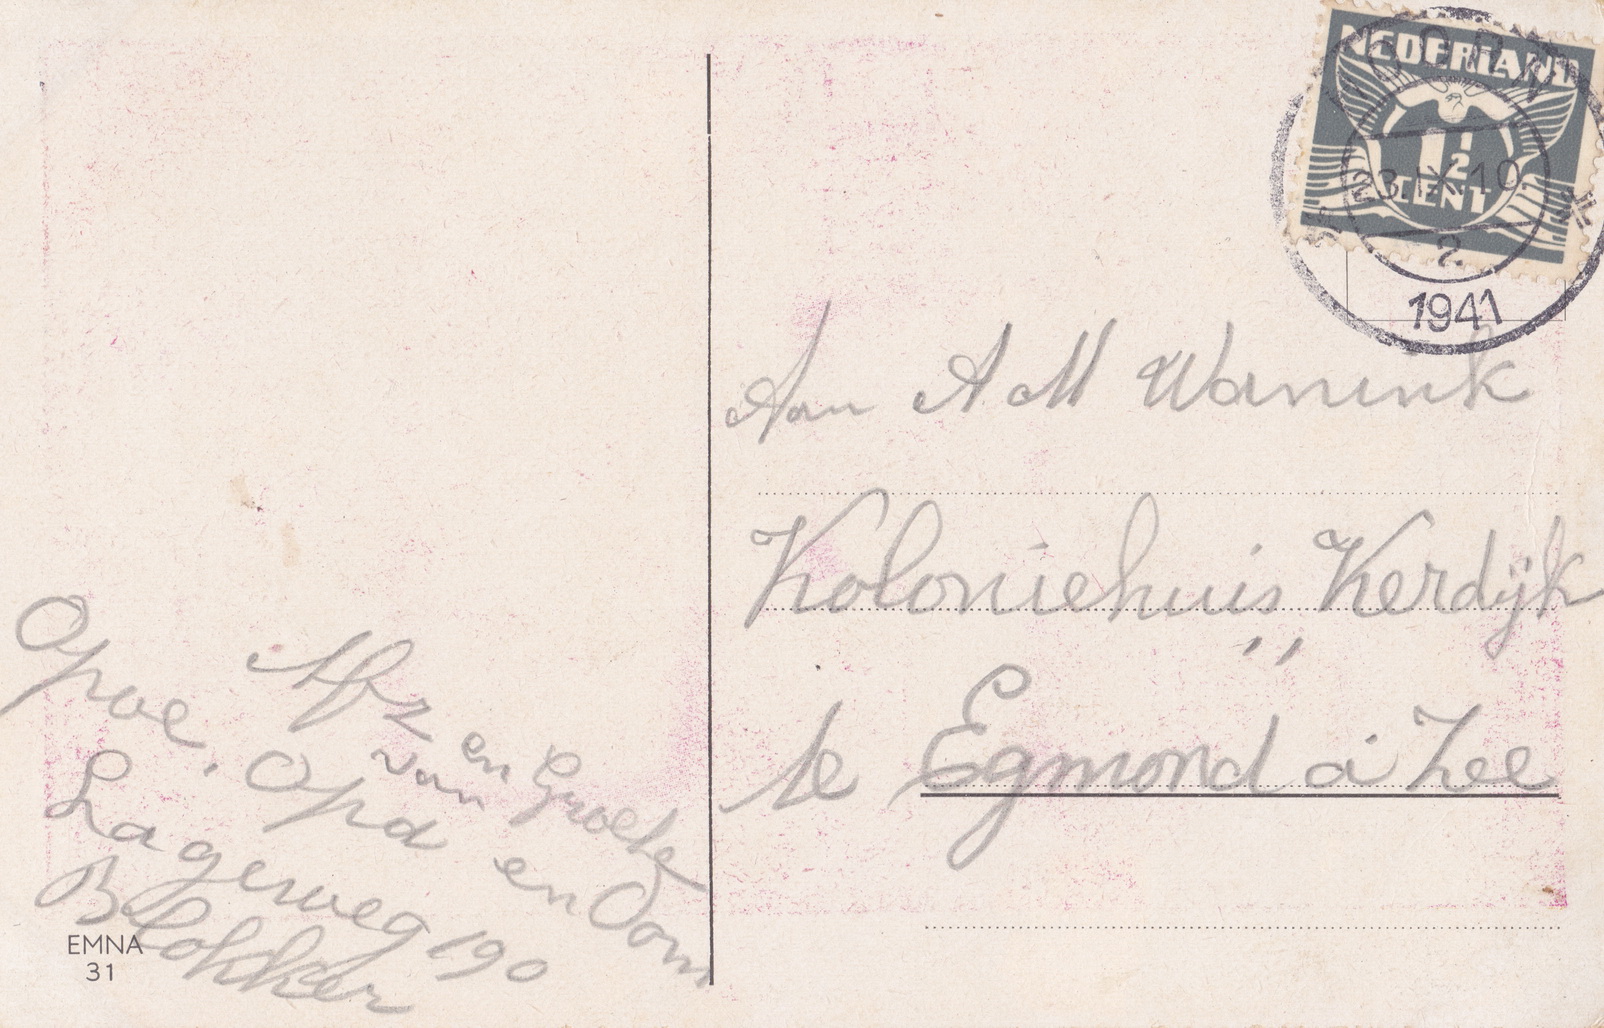 NEDERLAND
1 1/2
CENT
23.IX.10
2.
1941
Aan A M Wanink
Koloniehuis Kerdijk
te Egmond a Zee
Afz en Groete
van
Opoe. Opa en Oom
Lageweg 190
Blokker
EMNA
31